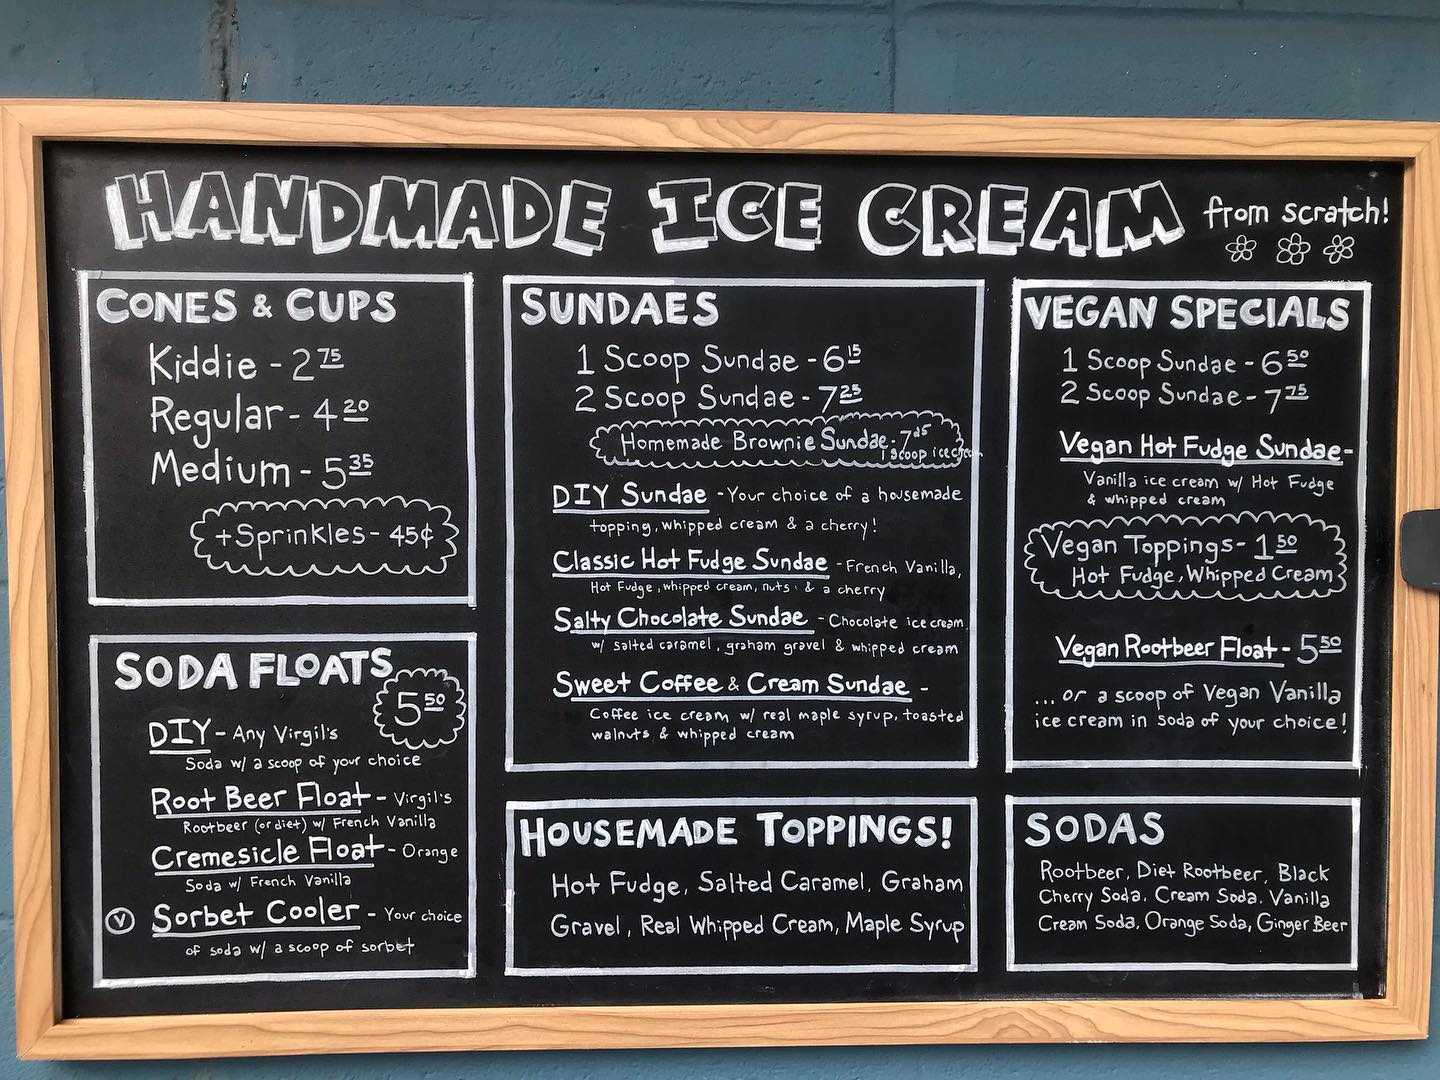 HANDMADE ICE CREAM from scratch!
CONES & CUPS
Kiddie - 2 75
Regular - 4 20
Medium - 5 35
+Sprinkles - 45¢
SODA FLOATS
5 50
DIY - Any Virgil's
Soda w/ a scoop of your choice
Root Beer Float - Virgil's
Rootbeer (or diet) w/ French Vanilla
Cremesicle Float - Orange
Soda w/ French Vanilla
V Sorbet Cooler - Your choice
of soda w/ a scoop of sorbet
SUNDAES
1 Scoop Sundae - 6 15
2 Scoop Sundae - 7 25
Homemade Brownie Sundae - 7 25
1 scoop ice cream
DIY Sundae - Your choice of a housemade
topping, whipped cream & a cherry!
Classic Hot Fudge Sundae - French Vanilla,
Hot Fudge, whipped cream, nuts & a cherry
Salty Chocolate Sundae - Chocolate ice cream
w/ salted caramel, graham gravel & whipped cream
Sweet Coffee & Cream Sundae -
Coffee ice cream w/ real maple syrup, toasted
walnuts & whipped cream
HOUSEMADE TOPPINGS!
Hot Fudge, Salted Caramel, Graham
Gravel, Real Whipped Cream, Maple Syrup
VEGAN SPECIALS
1 Scoop Sundae - 6 50
2 Scoop Sundae - 7 75
Vegan Hot Fudge Sundae -
Vanilla ice cream w/ Hot Fudge
& whipped cream
Vegan Toppings - 1 50
Hot Fudge, Whipped Cream
Vegan Rootbeer Float - 5 50
... or a scoop of Vegan Vanilla
ice cream in soda of your choice!
SODAS
Rootbeer, Diet Rootbeer, Black
Cherry Soda, Cream Soda, Vanilla
Cream Soda, Orange Soda, Ginger Beer